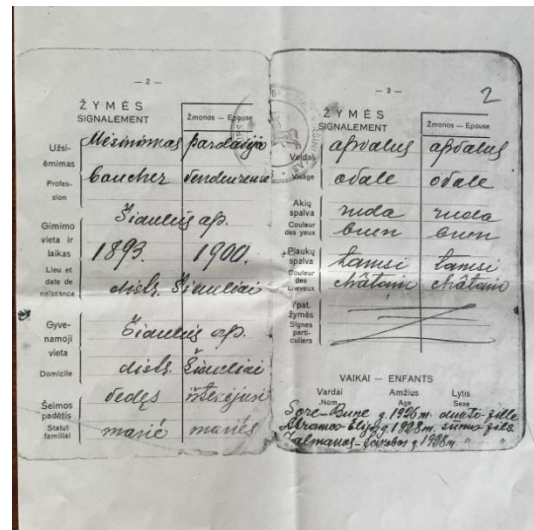 — 2 —
ŽYMĖS
SIGNALEMENT
Žmonos — Epouse
Užsi-
ėmimas
Profes-
sion
Mėsininkas pardavėja
boucher vendeuse
Gimimo
vieta ir
laikas
Lieu et
date de
naissance
Šiaulių ap.
1893. 1900.
distr. Šiauliai
Gyve-
namoji
vieta
Domicile
Šiaulių ap.
distr. Šiauliai
Šeimos
padėtis
Statut
familial
vedęs ištekėjusi
marié mariée
— 3 —
2
ŽYMĖS
SIGNALEMENT
Žmonos — Epouse
Veidas
Visage
apvalus apvalus
ovale ovale
Akių
spalva
Couleur
des yeux
ruda ruda
brun brun
Plaukų
spalva
Couleur
des
cheveux
tamsi tamsi
châtain châtain
Ypat.
žymės
Signes
parti-
culiers
VAIKAI — ENFANTS
Vardai Amžius Lytis
Nom Age Sexe
g. 1926 m. duktė-fille
g. 1928 m. sūnus-fils
g. 1928 m. " "